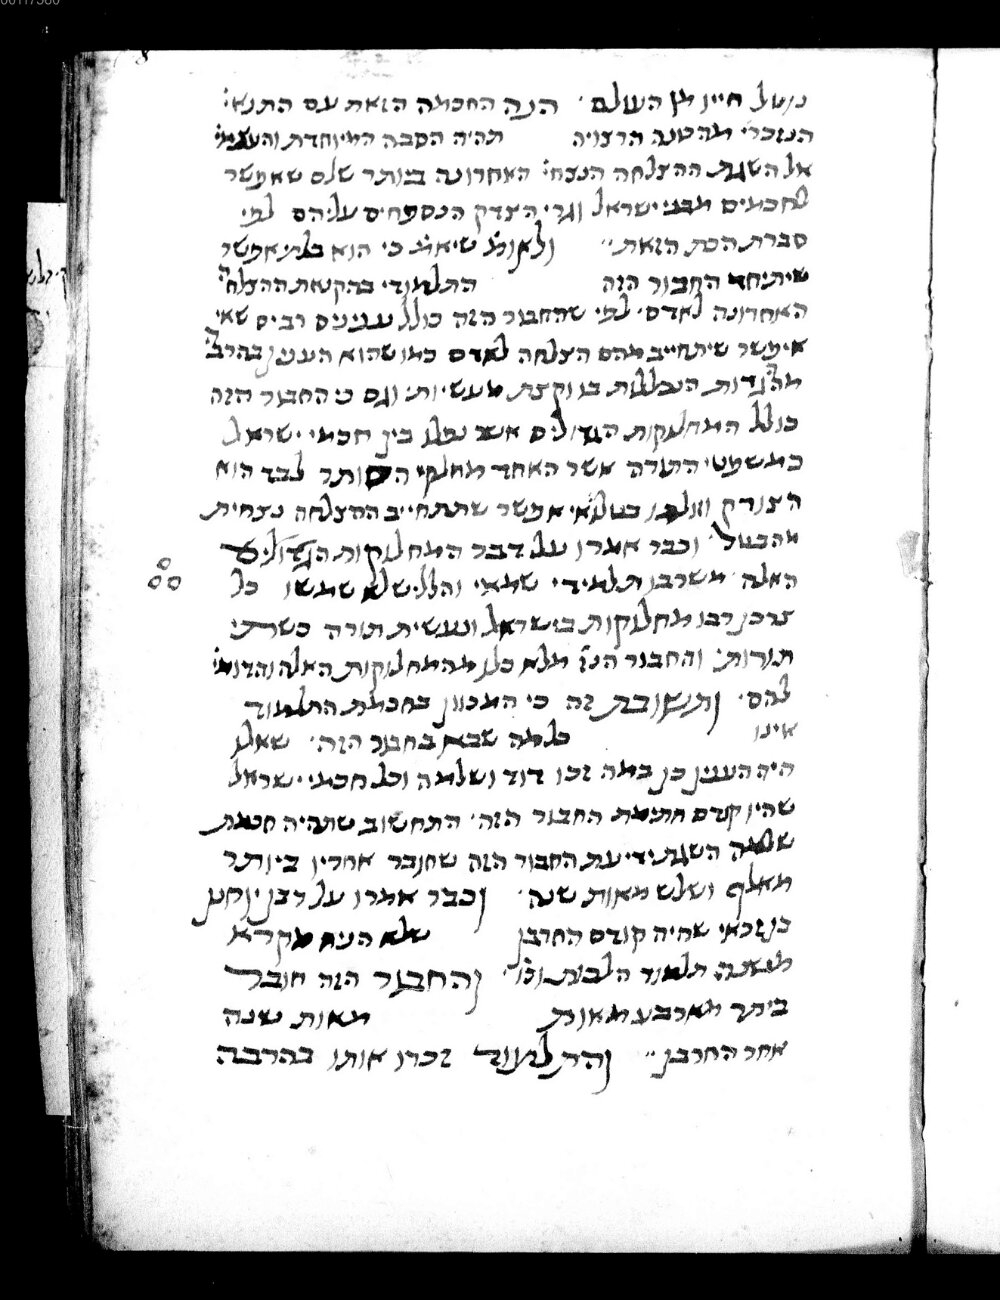 נוטל חייו מן העולם הנה החכמה הזאת עם התנאי
הנזכר מהכונה הרצויה תהיה הסבה המיוחדת והעצמי
אל השגת ההצלחה הנצחי׳ האחרונה ביותר שלם שאפשר
לחכמים מבני ישראל וגרי הצדק הנספחים עליהם לפי
סברת הכת הזאת ולאומ׳ שיאמ׳ כי הוא בלתי אפשר
שיתיחד החבור הזה התלמודי בהקנאת ההצלח׳
האחרונה לאדם לפי שהחבור הזה כולל ענינים רבים שאי
איפשר שיתחייב מהם הצלחה לאדם כמו שהוא הענין בהרב׳
מההגדות הנכללות בו וקצת מעשיות וגם כי החבור הזה
כולל המחלוקות הגדולים אשר נפלו בין חכמי ישראל
במשפטי התורה אשר האחד מחלקי הסותר לבד הוא
הצודק וזולתו בטל ואי אפשר שתתחייב ההצלחה נצחית
מהבטל וכבר אמרו על דבר המחלוקות הגדולים
האלה משרבו תלמידי שמאי והלל שלא שמשו כל
צרכן רבו מחלוקות בישראל ונעשית תורה כשתי
תורות והחבור הנז׳ מלא כלו מהמחלוקות האלה והדומי׳
להם ותשובת זה כי המכוון בחכמת התלמוד
אינו כל מה שבא בחבור הזה שאלו
היה הענין כן במה זכו דוד ושלמה וכל חכמי ישראל
שהיו קודם חתימת החבור הזה התחשוב שתהיה חכמת
שלמה השגת ידיעת החבור הזה שחובר אחריו ביותר
מאלף ושלש מאות שנה וכבר אמרו על רבן יוחנן
בן זכאי שהיה קודם החרבן שלא הניח מקרא
משנה תלמוד הלכות וכו׳ והחבור הזה חובר
ביתר מארבע מאות מאות שנה
אחר החרבן והתלמוד זכרו אותו בהרבה